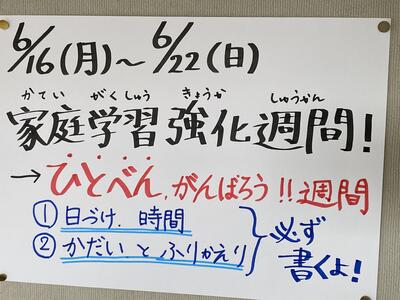 6/16(月)～6/22(日)
かてい がくしゅう きょうか しゅうかん
家庭学習強化週間!
→ひとべん、がんばろう!!週間
①日づけ、時間
②かだいとふりかえり
必ず
書くよ!